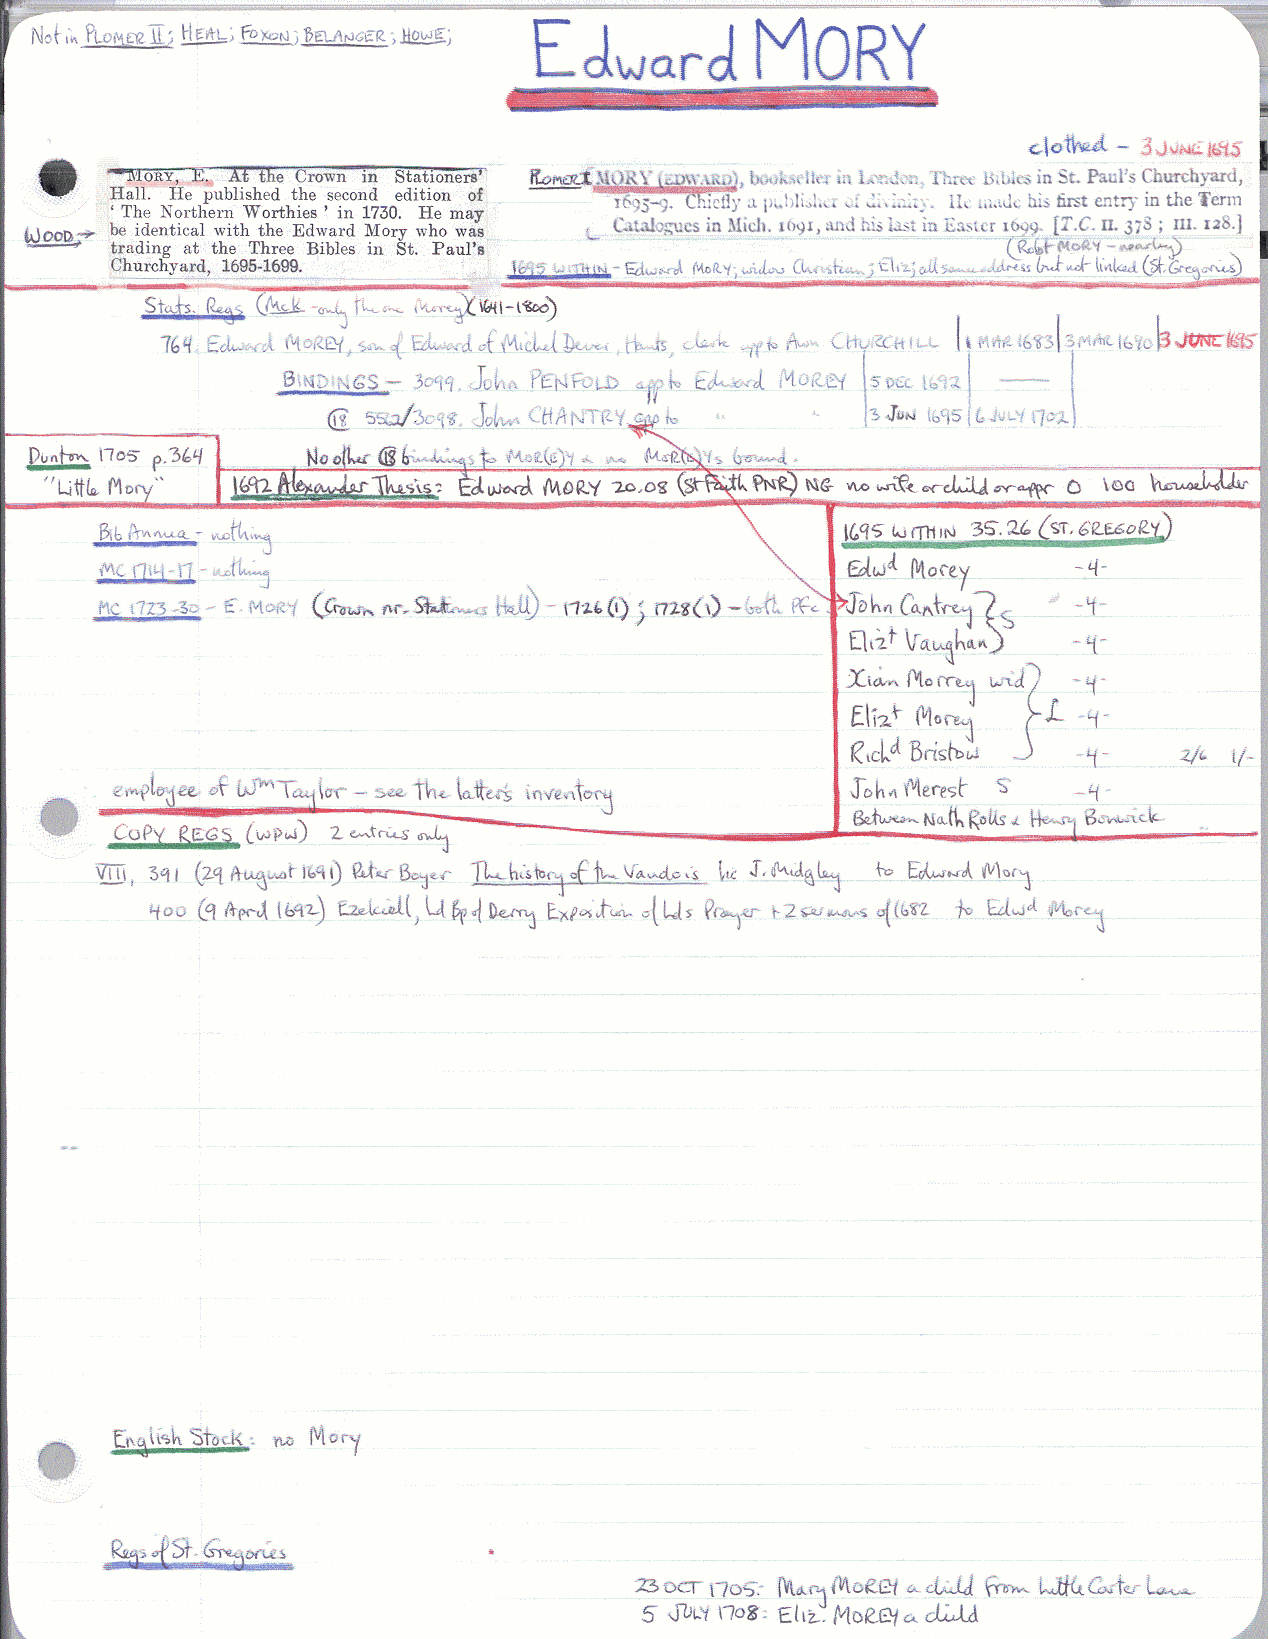 Not in PLOMER II; HEAL; FOXON; BELANGER; HOWE;
Edward MORY
clothed – 3 JUNE 1695
MORY, E. At the Crown in Stationers'
Hall. He published the second edition of
' The Northern Worthies ' in 1730. He may
be identical with the Edward Mory who was
trading at the Three Bibles in St. Paul's
Churchyard, 1695-1699.
WOOD →
PLOMER I MORY (EDWARD), bookseller in London, Three Bibles in St. Paul's Churchyard,
1695-9. Chiefly a publisher of divinity. He made his first entry in the Term
Catalogues in Mich. 1691, and his last in Easter 1699. [T.C. II. 378 ; III. 128.]
(Robt MORY – nearby)
1695 WITHIN – Edward MORY; widow Christian; Eliz; all same address but not linked (St. Gregories)
Stats. Regs (McK – only the one Morey) (1641-1800)
764. Edward MOREY, son of Edward of Michel Dever, Hants, clerk app to Awn CHURCHILL | 1 MAR 1683 | 3 MAR 1690 | 3 JUNE 1695
BINDINGS – 3099. John PENFOLD app to Edward MOREY | 5 DEC 1692 | —
@ 18 552/3098. John CHANTRY app to " " | 3 JUN 1695 | 6 JULY 1702
Dunton 1705 p.364
"Little Mory"
No other @18 bindings to MOR(E)Y & no MOR(E)Ys bound.
1692 Alexander Thesis: Edward MORY 20.08 (St Faith PNR) NG no wife or child or appr 0 100 householder
Bib Annua – nothing
MC 1714-17 – nothing
MC 1723-30 – E. MORY (Crown nr. Stationers Hall) – 1726(1) ; 1728(1) – both PFc
1695 WITHIN 35.26 (ST. GREGORY)
Edwd Morey -4-
John Cantrey } S -4-
Elizt Vaughan } -4-
Xian Morrey wid } -4-
Elizt Morey } L -4-
Richd Bristow } -4- 2/6 1/-
John Merest S -4-
Between Nath Rolls & Henry Bonwick
employee of Wm Taylor – see the latter's inventory
COPY REGS (WPW) 2 entries only
VIII, 391 (29 August 1691) Peter Boyer The history of the Vaudois lic J. Midgley to Edward Mory
400 (9 April 1692) Ezekiell, Ld Bp of Derry Exposition of Lds Prayer + 2 sermons of 1682 to Edwd Morey
English Stock: no Mory
Regs of St. Gregories
23 OCT 1705: Mary MOREY a child from Little Carter Lane
5 JULY 1708: Eliz. MOREY a child